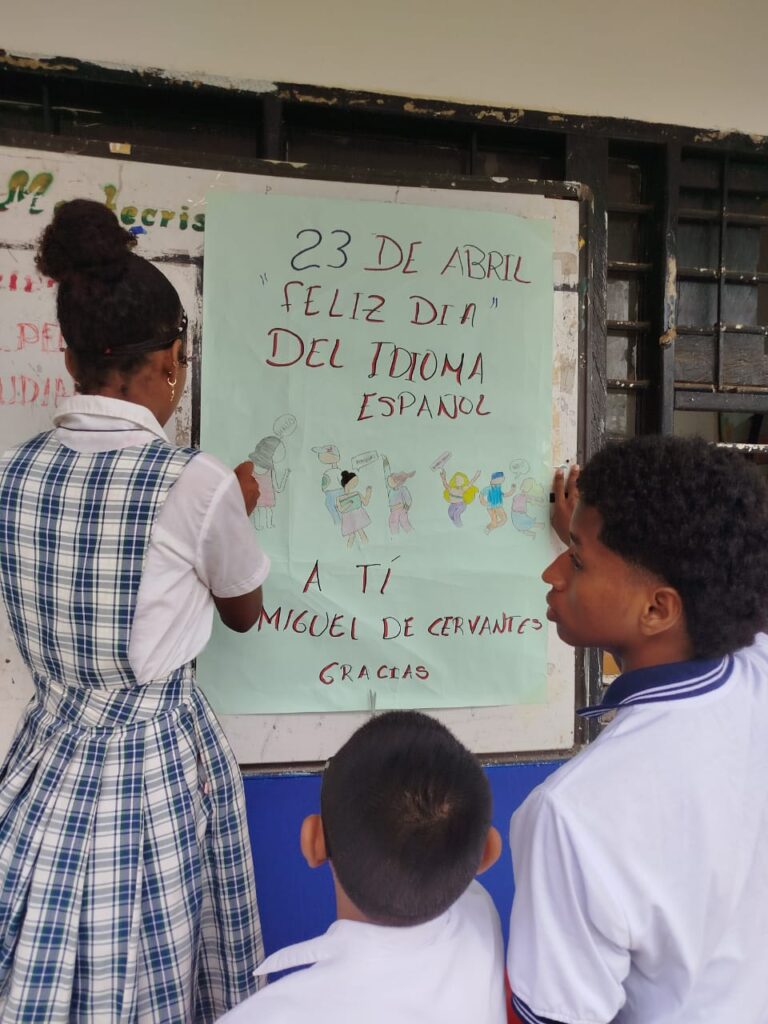 23 DE ABRIL
"FELIZ DIA"
DEL IDIOMA
ESPAÑOL
A TÍ
MIGUEL DE CERVANTES
GRACIAS